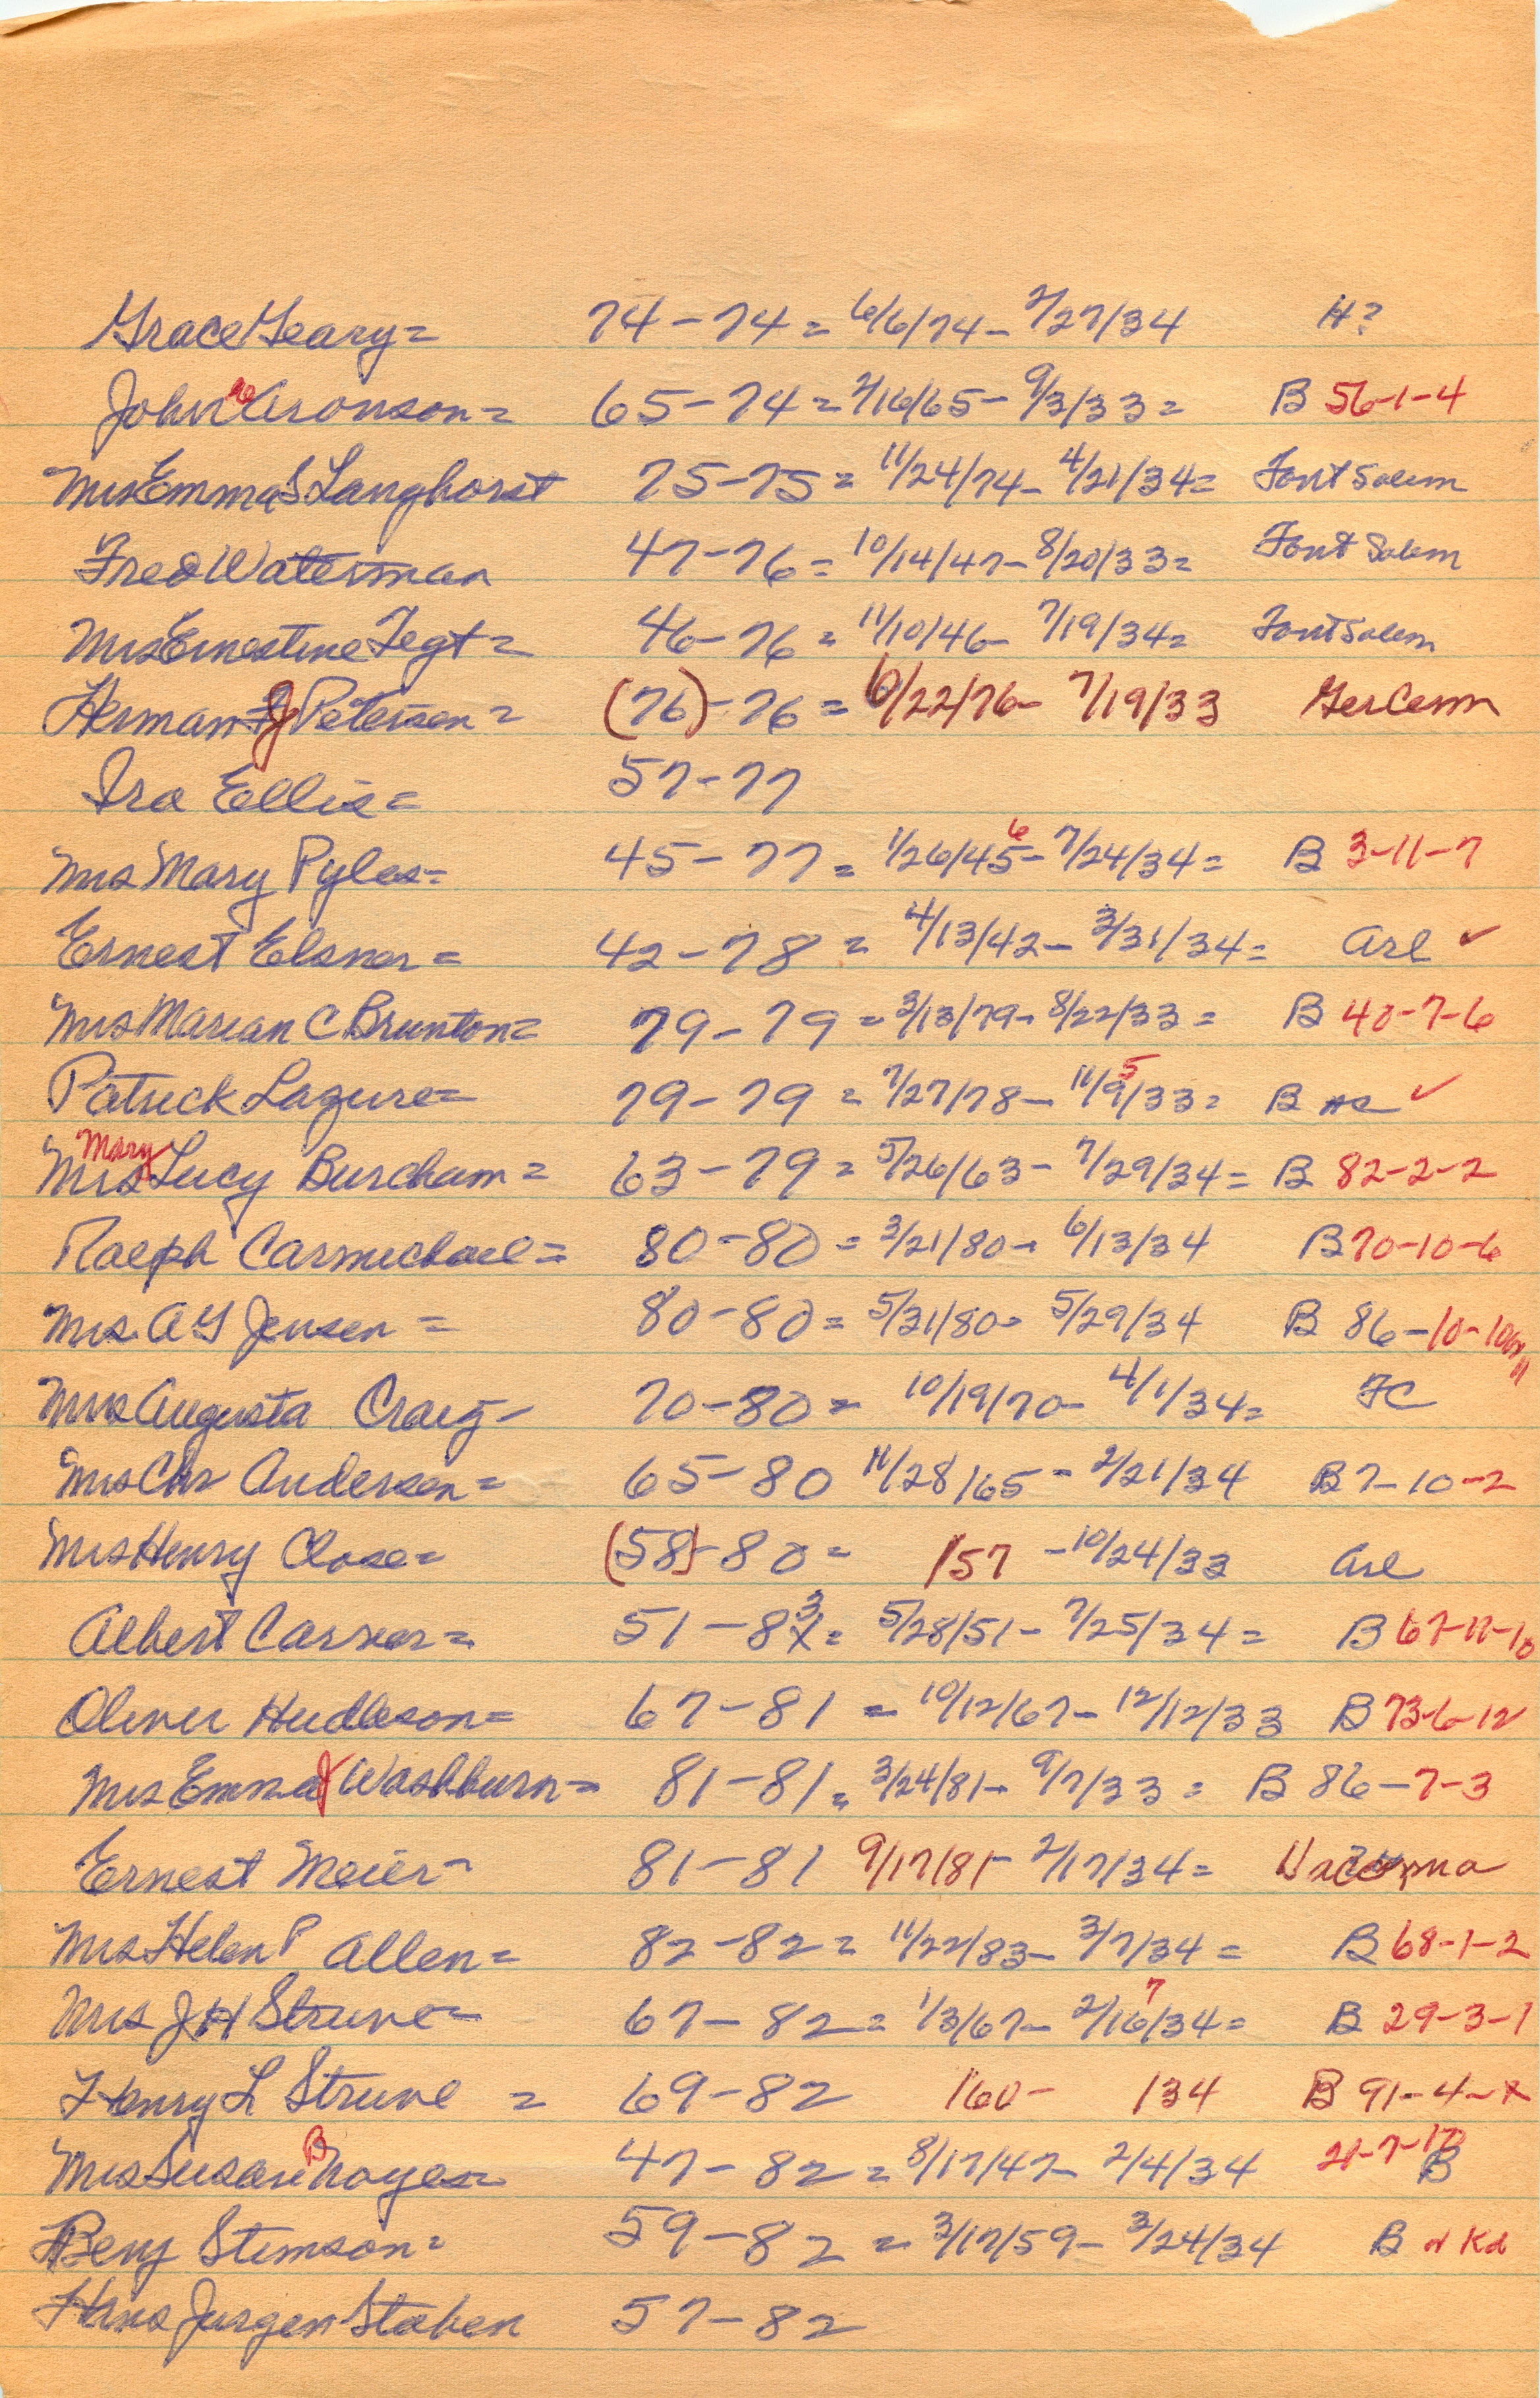 Grace Geary = 74-74 = 6/6/74 - 2/27/34 H?
John Aronson = 65-74 = 2/16/65 - 9/3/33 = B 56-1-4
Mrs Emma S Langhorst 75-75 = 11/24/74 - 4/21/34 = Font Salem
Fred Waterman 47-76 = 10/14/47 - 8/20/33 = Font Salem
Mrs Ernestine Tegt = 46-76 = 11/10/46 - 7/19/34 = Font Salem
Herman J Petersen = (76)-76 = 6/22/76 - 7/19/33 Ger Cem
Ira Ellis = 57-77
Mrs Mary Pyles = 45-77 = 1/26/45 6 - 7/24/34 = B 3-11-7
Ernest Elsner = 42-78 = 4/13/42 - 3/31/34 = Arl ✓
Mrs Marian C Brunton = 79-79 = 3/13/79 - 8/22/33 = B 40-7-6
Patrick Lazure = 79-79 = 7/27/78 - 11/9 5/33 = B HC ✓
Mrs Mary Lucy Burcham = 63-79 = 5/26/63 - 7/29/34 = B 82-2-2
Ralph Carmichael = 80-80 = 3/21/80 - 6/13/34 B 70-10-6
Mrs. A G Jensen = 80-80 = 5/31/80 - 5/29/34 B 86-10-10
Mrs Augusta Craig - 70-80 = 10/19/70 - 4/1/34 = FC
Mrs Chr Andersen = 65-80 11/28/65 - 2/21/34 B 7-10-2
Mrs Henry Close = (58)-80 = /57 - 10/24/33 Arl
Albert Carver = 51-83 = 5/28/51 - 7/25/34 = B 67-11-10
Oliver Hudleson = 67-81 = 10/12/67 - 12/12/33 B 73-6-12
Mrs Emma J Washburn = 81-81 = 3/24/81 - 9/7/33 = B 86-7-3
Ernest Meier = 81-81 9/17/81 - 2/17/34 = Wacoma
Mrs Helen P Allen = 82-82 = 11/22/83 - 3/7/34 = B 68-1-2
Mrs J H Struve = 67-82 = 1/3/67 - 2/16 7/34 = B 29-3-1
Henry L Struve = 69-82 /60 - /34 B 91-4-x
Mrs Susan B Noyes = 47-82 = 8/17/47 - 2/4/34 21-7-12 B
Benj Stimson = 59-82 = 3/17/59 - 3/24/34 B
Hans Jurgen Staben 57-82